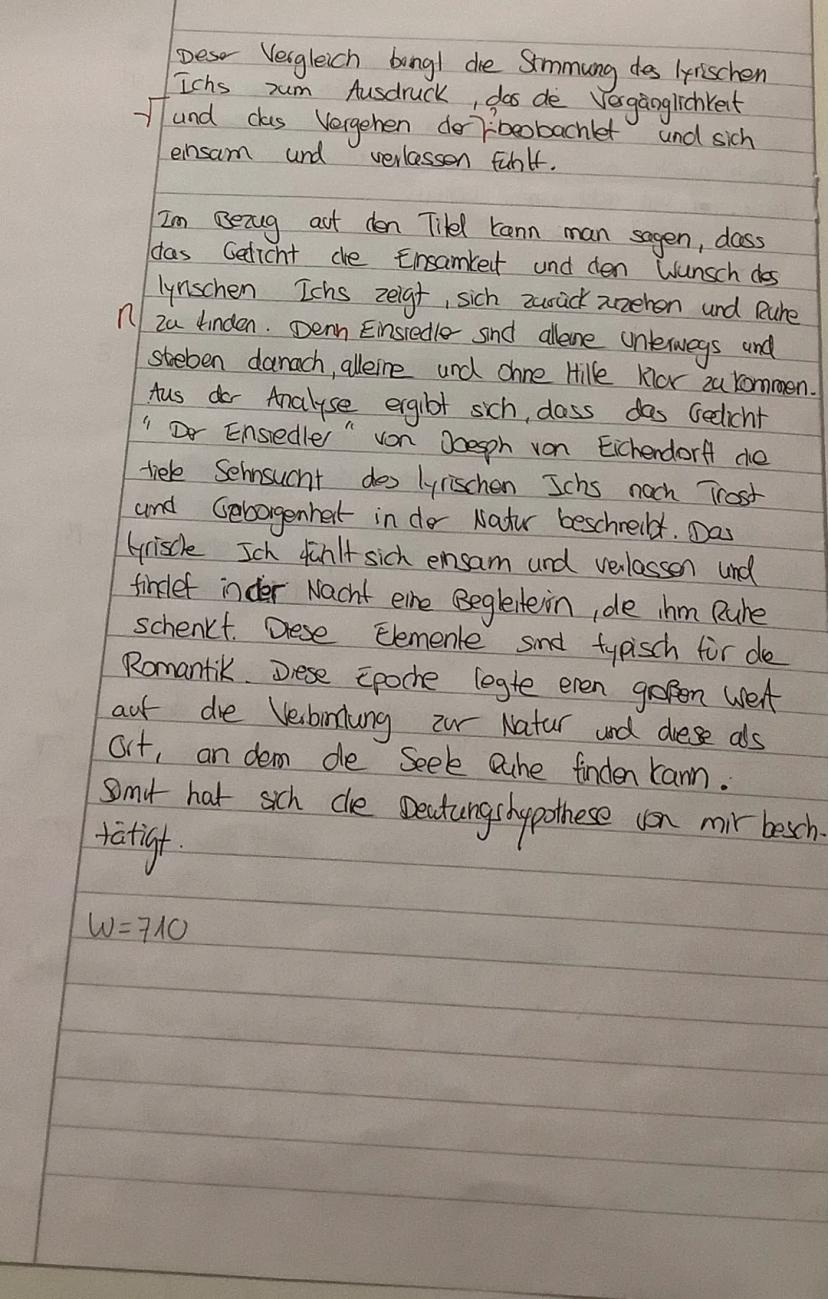 Dieser Vergleich bringt die Stimmung des lyrischen
Ichs zum Ausdruck, das die Vergänglichkeit
und das Vergehen der beobachtet und sich
einsam und verlassen fühlt.
Im Bezug auf den Titel kann man sagen, dass
das Gedicht die Einsamkeit und den Wunsch des
lyrischen Ichs zeigt, sich zurück zuziehen und Ruhe
zu finden. Denn Einsiedler sind alleine unterwegs und
streben danach, alleine und ohne Hilfe klar zu kommen.
Aus der Analyse ergibt sich, dass das Gedicht
"Der Einsiedler" von Joesph von Eichendorff die
tiefe Sehnsucht des lyrischen Ichs nach Trost
und Geborgenheit in der Natur beschreibt. Das
lyrische Ich fühlt sich einsam und verlassen und
findet in der Nacht eine Begleiterin, die ihm Ruhe
schenkt. Diese Elemente sind typisch für die
Romantik. Diese Epoche legte einen großen Wert
auf die Verbindung zur Natur und diese als
Ort, an dem die Seele Ruhe finden kann.
Somit hat sich die Deutungshypothese von mir besch-
tätigt.
W=710